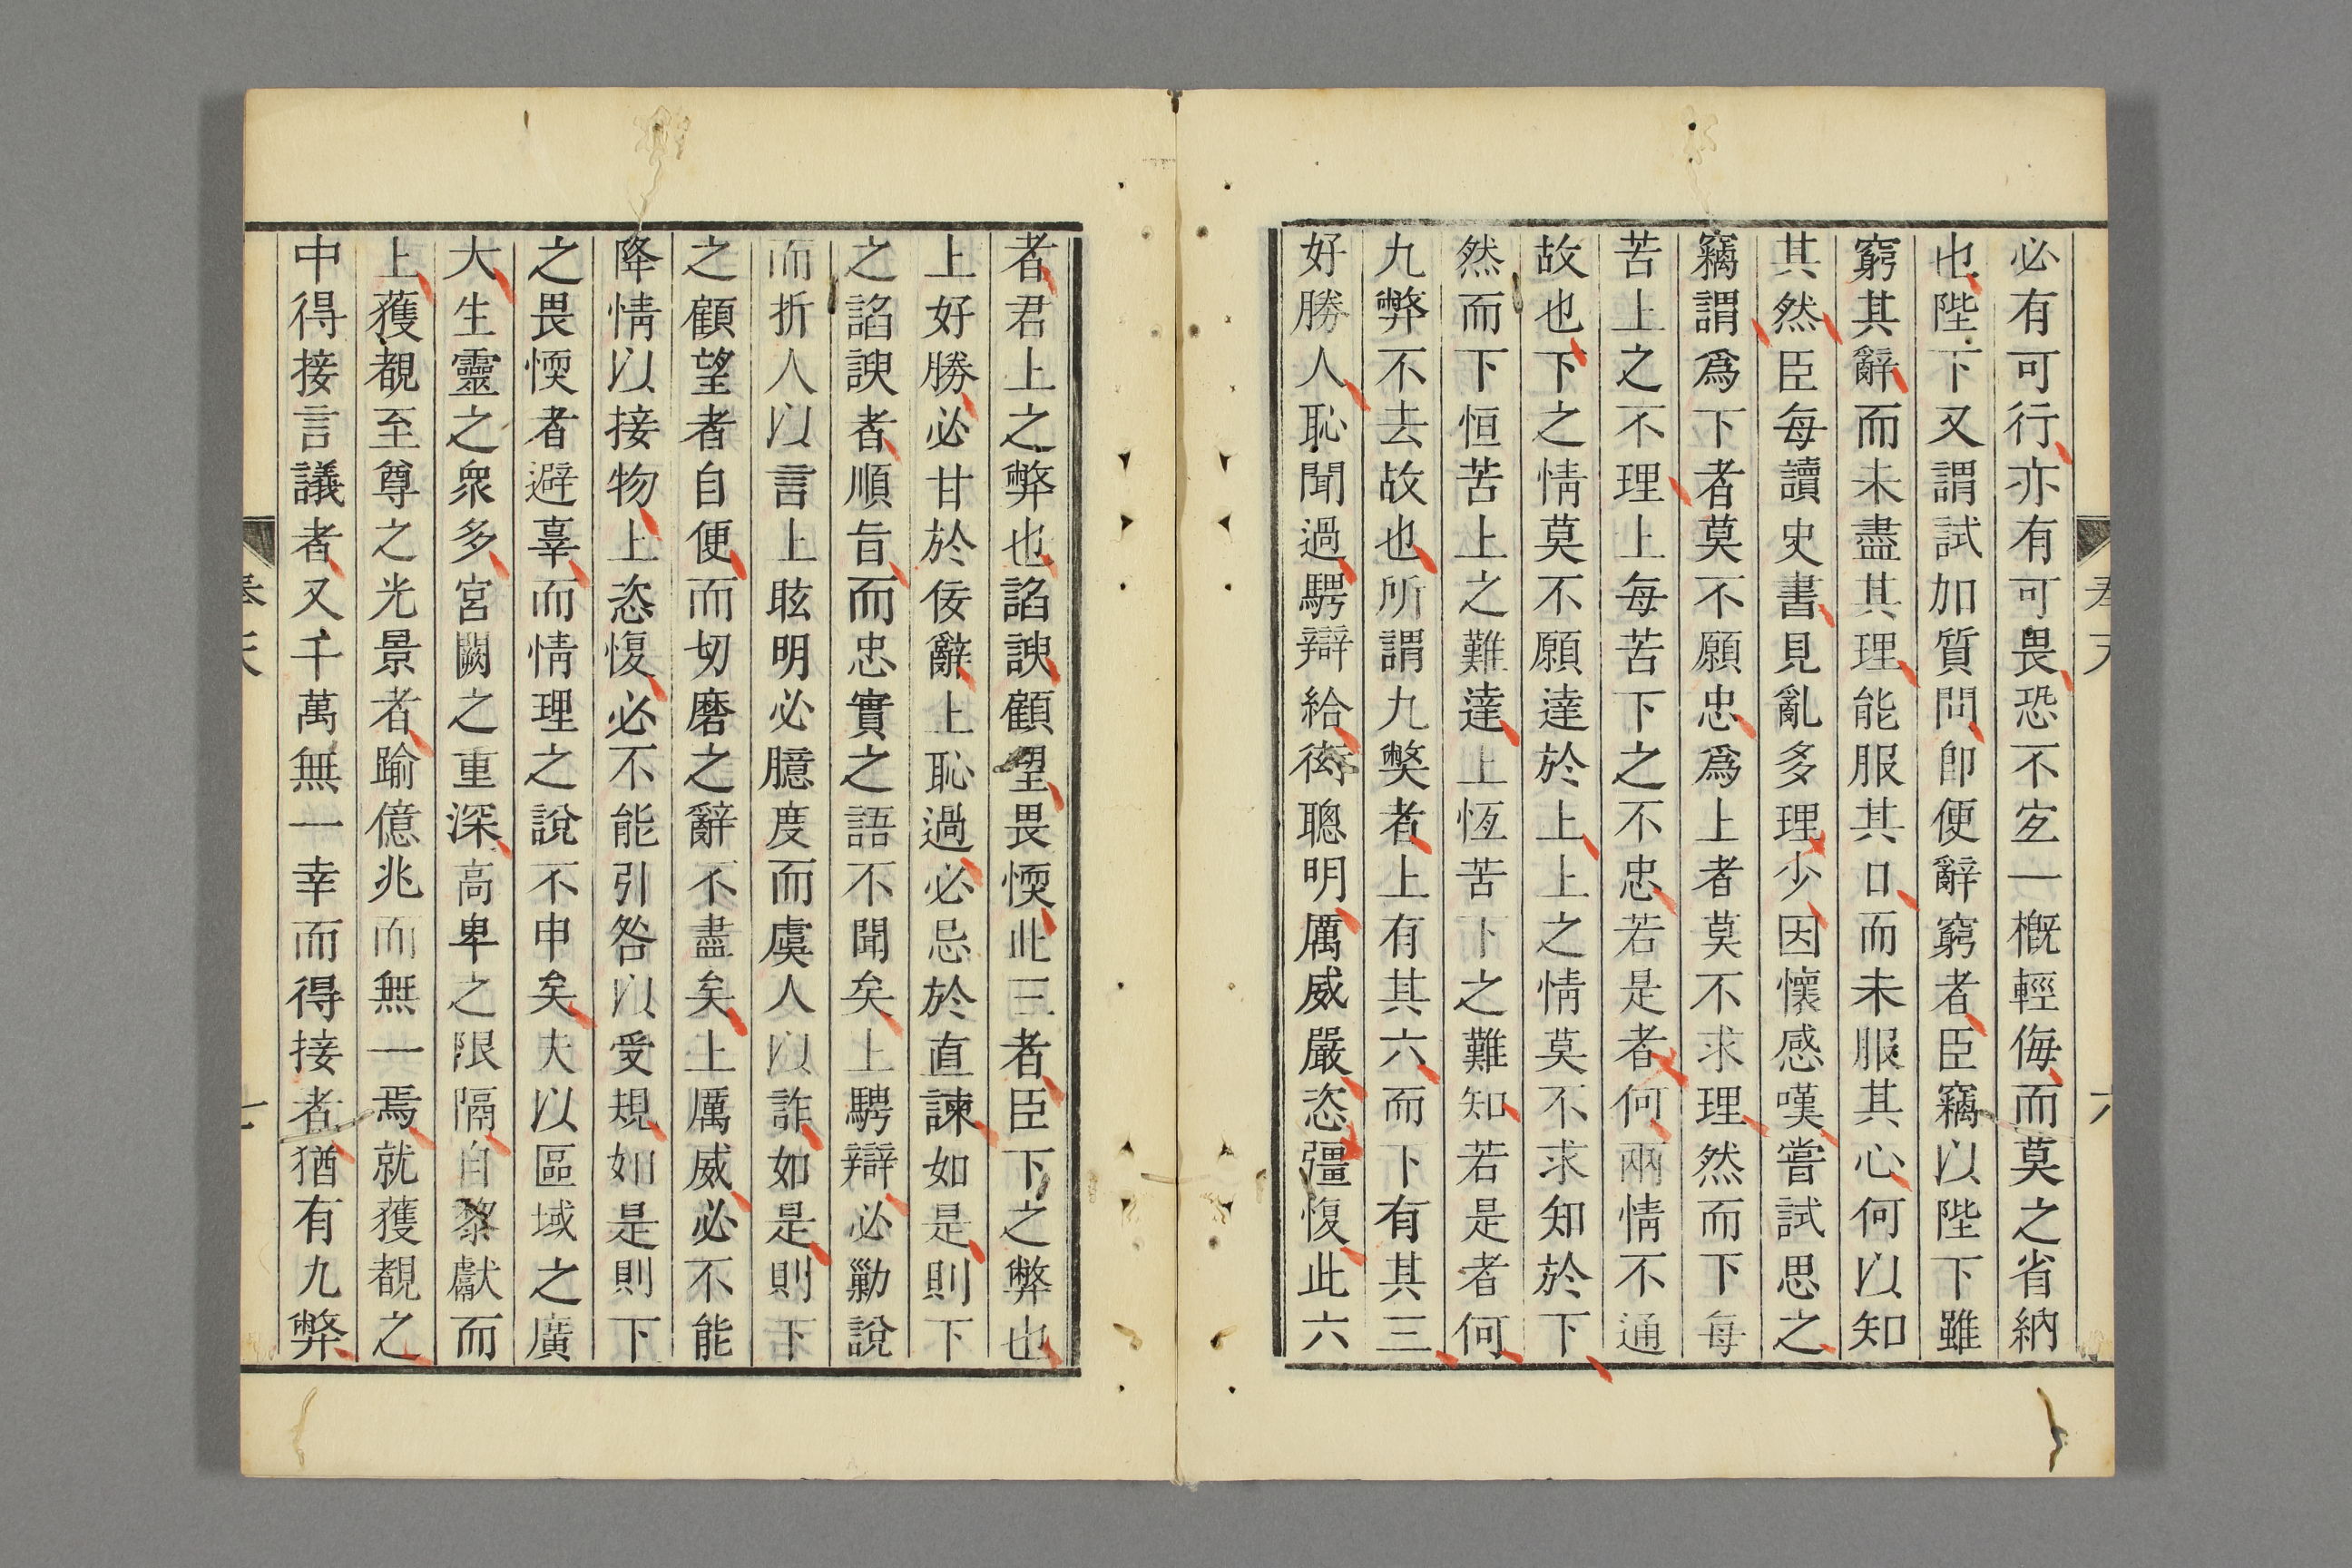 必有可行亦有可畏恐不宐一槪輕侮而莫之省納
也陛下又謂試加質問卽便辭窮者臣竊以陛下雖
窮其辭而未盡其理能服其口而未服其心何以知
其然臣每讀史書見亂多理少因懷感嘆嘗試思之
竊謂爲下者莫不願忠爲上者莫不求理然而下每
苦上之不理上每苦下之不忠若是者何兩情不通
故也下之情莫不願達於上上之情莫不求知於下
然而下恒苦上之難達上恆苦下之難知若是者何
九弊不去故也所謂九獘者上有其六而下有其三
好勝人恥聞過騁辯給衒聰明厲威嚴恣彊愎此六
者君上之弊也諂諛顧望畏愞此三者臣下之弊也
上好勝必甘於佞辭上恥過必忌於直諫如是則下
之諂諛者順旨而忠實之語不聞矣上騁辯必勦說
而折人以言上眩明必臆度而虞人以詐如是則下
之顧望者自便而切磨之辭不盡矣上厲威必不能
降情以接物上恣愎必不能引咎以受規如是則下
之畏愞者避辜而情理之說不申矣夫以區域之廣
大生靈之衆多宮闕之重深高卑之限隔自黎獻而
上獲覩至尊之光景者踰億兆而無一焉就獲覩之
中得接言議者又千萬無一幸而得接者猶有九弊